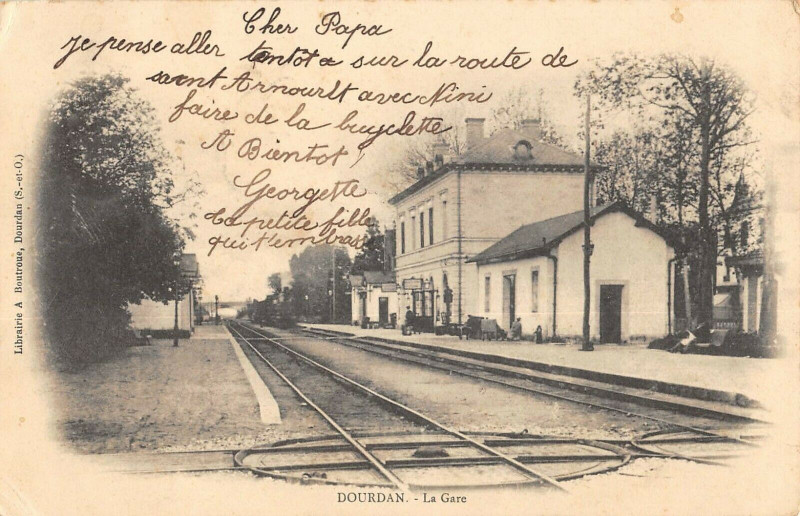 Cher Papa
Je pense aller tantôt a sur la route de
saint Arnourlt avec Nini
faire de la bicyclette
A Bientot,
Georgette
Ta petite fille
qui t'embrasse
Librairie A Boutroue, Dourdan (S.-et-O.)
DOURDAN. - La Gare